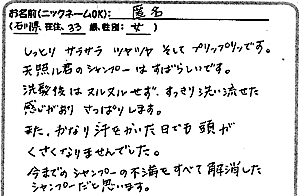 お名前(ニックネームOK): 匿名
(石川県 在住、33 歳、性別: 女 )
しっとり サラサラ ツヤツヤ そして プリップリッです。
天照ル君のシャンプーは すばらしいです。
洗髪後は ヌルヌルせず、すっきり洗い流せた
感じがあり さっぱりします。
また、かなり汗をかいた日でも 頭が
くさくなりませんでした。
今までのシャンプーの不満をすべて解消した
シャンプーだと思います。